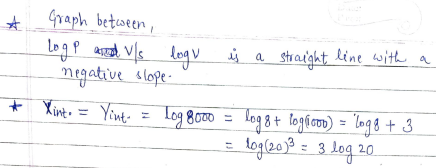 * Graph between,
log P v/s log V is a straight line with a
negative slope.
* Xint. = Yint. = log 8000 = log 8 + log(1000) = log 8 + 3
= log(20)³ = 3 log 20